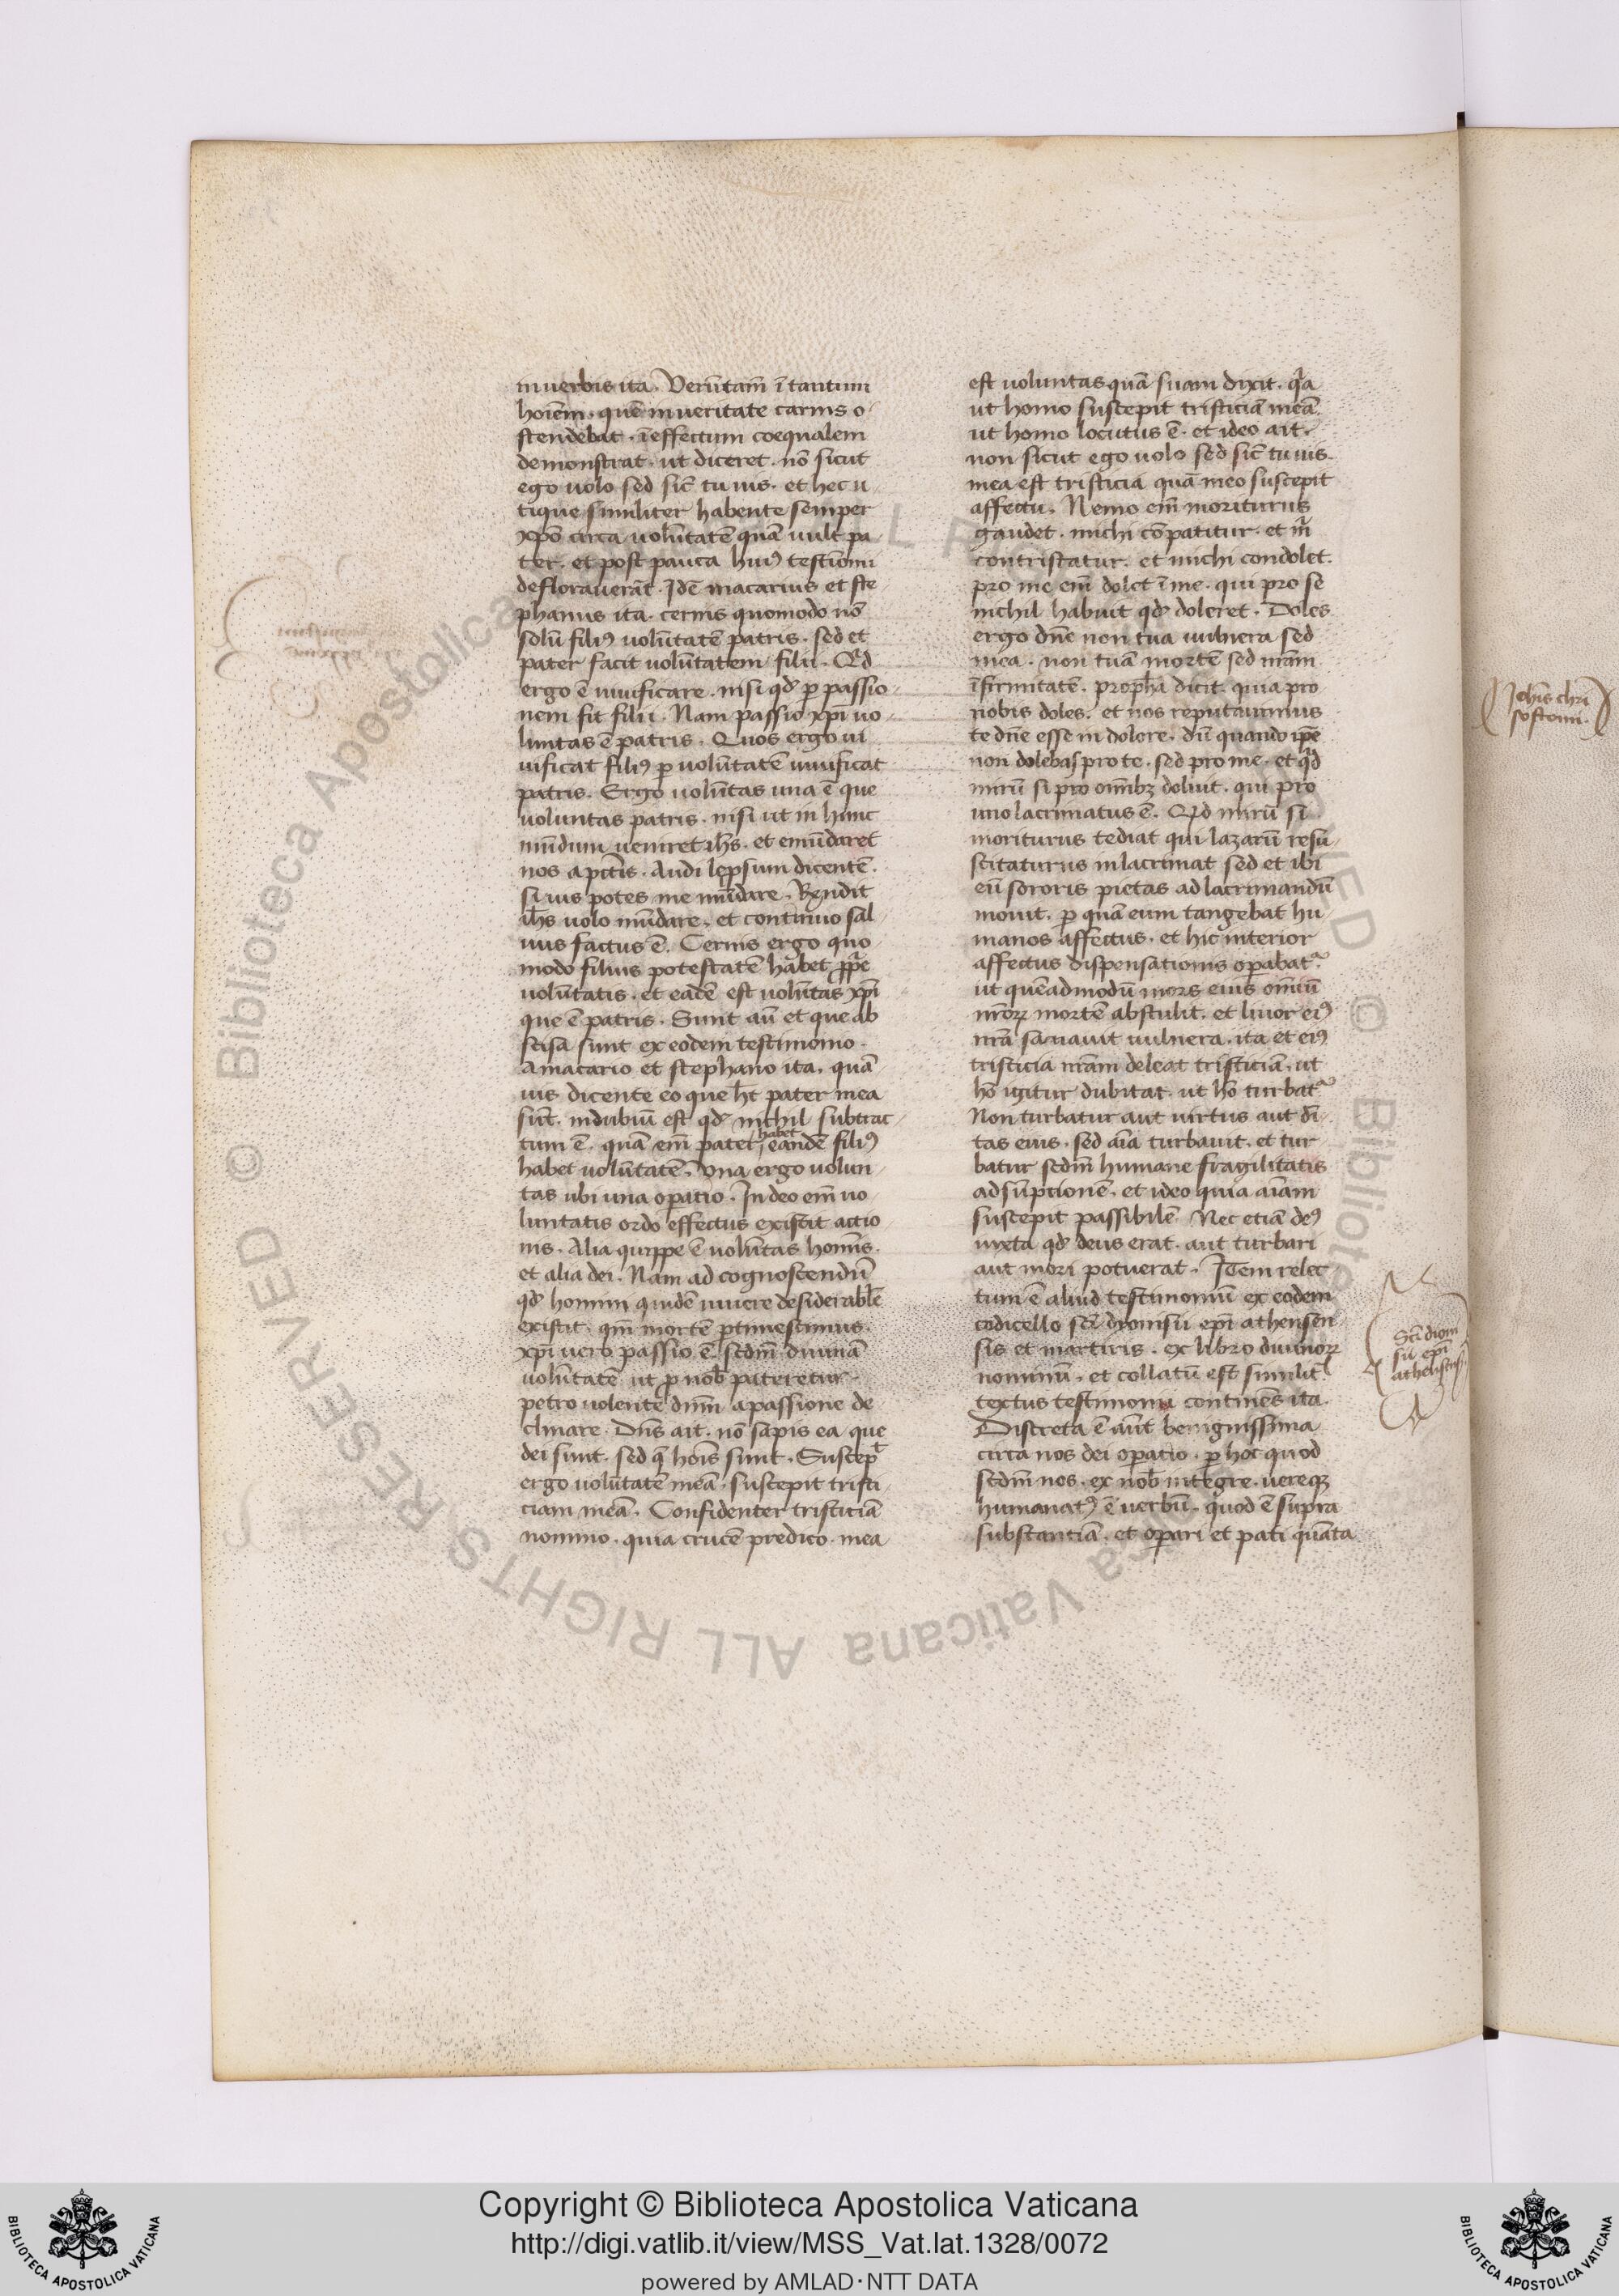 in uerbis ita. Verūtam̄ ī tantum
hoiēm. quē in ueritate carnis o
stendebat. ī effectum coequalem
demonstrat. ut diceret. nō sicut
ego uolo sed sic̄ tu uis. et hec u
tique similiter habente semper
xp̄o circa uolūtatē quā uult pa
ter. et post pauca huiꝰ testīonii
deflorauerāt. Idē macarius et ste
phanus ita. cernis quomodo nō
solū filiꝰ uolūtatē patris. sed et
pater facit uolūtatem filii. Qͥd
ergo ē uiuificare. nisi qd̓ ꝑ passio
nem fit filii. Nam passio xp̄i uo
luntas ē patris. Quos ergo ui
uificat filiꝰ ꝑ uolūtatē uiuificat
patris. Ergo uolūtas una ē que
uoluntas patris. nisi ut in hunc
mūdum ueniret ih̄s. et emūdaret
nos a pctīs. Audi lepsum dicentē.
si uis potes me mūdare. Rn̄dit
ih̄s uolo mūdare. et continuo sal
uus factus ē. Cernis ergo quo
modo filius potestatē habet ꝓpͥe
uolūtatis. et eadē est uolūtas xp̄i
que ē patris. Sunt aū et que ab
scisa sunt ex eodem testimonio.
A macario et stephano ita. quā
uis dicente eo que ht̄ pater mea
sūt. indubiū est qd̓ nichil subtrac
tum ē. quā em̄ pater habet eandē filiꝰ
habet uolūtatē. Vna ergo uolun
tas ubi una oꝑatio. In deo em̄ uo
luntatis ordo effectus existit actio
nis. Alia quippe ē uolūtas hominis.
et alia dei. Nam ad cognoscendū
qd̓ homini quidē uiuere desiderabile
existit. qm̄ mortē ꝑtimescimus.
xp̄i uero passio ē scdm̄ diuinā
uolūtatē ut ꝓ nob̄ pateretur.
petro uolente dn̄m a passione de
clinare. Dn̄s ait. nō sapis ea que
dei sunt. sed q̄ hoīs sunt. Suscep̄t
ergo uolūtatē meā. suscepit tristi
ciam meā. Confidenter tristiciā
nomino. quia crucē predico. mea
est uoluntas quā suam dixit. qͥa
ut homo suscepit tristiciā meā
ut homo locutus ē. et ideo ait.
non sicut ego uolo sed sic̄ tu uis.
mea est tristicia quā meo suscepit
affectu. Nemo em̄ moriturus
gaudet. michi cōpatitur. et m̄
contristatur. et michi condolet.
pro me em̄ dolet ī me. qui pro se
nichil habuit qd̓ doleret. Doles
ergo dn̄e non tua uulnera sed
mea. non tuā mortē sed nr̄am
īfirmitatē. propha dicit. quia pro
nobis doles. et nos reputauimus
te dn̄e esse in dolore. dū quando ip̄e
non dolebas pro te. sed pro me. et qͥd
mirū si pro om̄ibꝫ doluit. qui pro
uno lacrimatus ē. Qͥd mirū si
moriturus tediat qui lazarū resu
scitaturus inlacrimat sed et ibi
eū sororis pietas ad lacrimandū
mouit. ꝑ quā eum tangebat hu
manos affectus. et hic interior
affectus dispensationis oꝑabatᷣ.
ut quēadmodū mors eius omniū
nr̄oꝝ mortē abstulit. et liuor eiꝰ
nr̄a sanauit uulnera. ita et eiꝰ
tristicia nr̄am deleat tristiciā. ut
hō igitur dubitat. ut hō turbatᷣ
Non turbatur aut uirtus aut di
tas eius. sed aīa turbauit. et tur
batur scdm̄ humane fragilitatis
adsūptionē. et ideo quia aīam
suscepit passibilē Nec etiā deꝰ
iuxta qd̓ deus erat. aut turbari
aut mori potuerat. Item relec
tum ē aliud testimoniū ex eodem
codicello sc̄i dyonisii ep̄i athenien
sis et martiris. ex libro diuinoꝝ
nominū. et collatū est similit̄
textus testimonii continēs ita.
Discreta ē aūt benignissima
circa nos dei oꝑatio. ꝑ hoc quod
scdm̄ nos. ex nob̄ integre. uereqꝫ
humanatꝰ ē uerbū. quod ē supra
substantiā. et oꝑari et pati quāta
Sc̄i dioni
sii ep̄i
atheniensis
Ioh̄is chri
sostomi.
© Biblioteca Apostolica Vaticana ALL RIGHTS RESERVED
Copyright © Biblioteca Apostolica Vaticana
http://digi.vatlib.it/view/MSS_Vat.lat.1328/0072
powered by AMLAD·NTT DATA
BIBLIOTECA APOSTOLICA VATICANA
BIBLIOTECA APOSTOLICA VATICANA